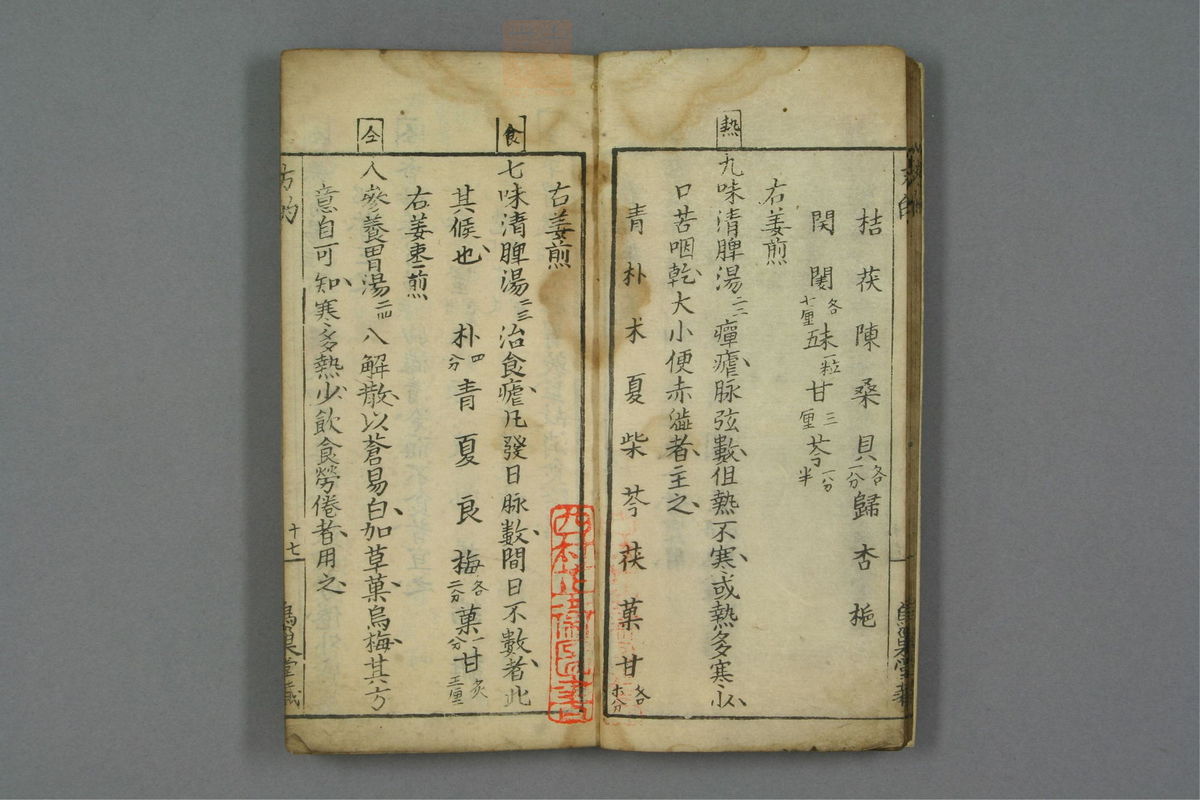 桔 茯 陳 桑 貝各二分 歸 杏 栀
関 関各七厘 五味一粒 甘三厘 芩一分半
右姜煎
熱
九味清脾湯二二 癉瘧脉弦數但熱不寒或熱多寒少
口苦咽乾大小便赤澁者主之
青 朴 术 夏 柴 芩 茯 菓 甘各
右姜煎
食
七味清脾湯二三 治食瘧凡發日脉數間日不數者此
其候也 朴四分 青 夏 良 梅各二分 菓一分 甘炙三厘
右姜棗煎
仝
人參養胃湯二四 八解散以蒼易白加草菓烏梅其方
意自可知寒多熱少飲食勞倦者用之
十七